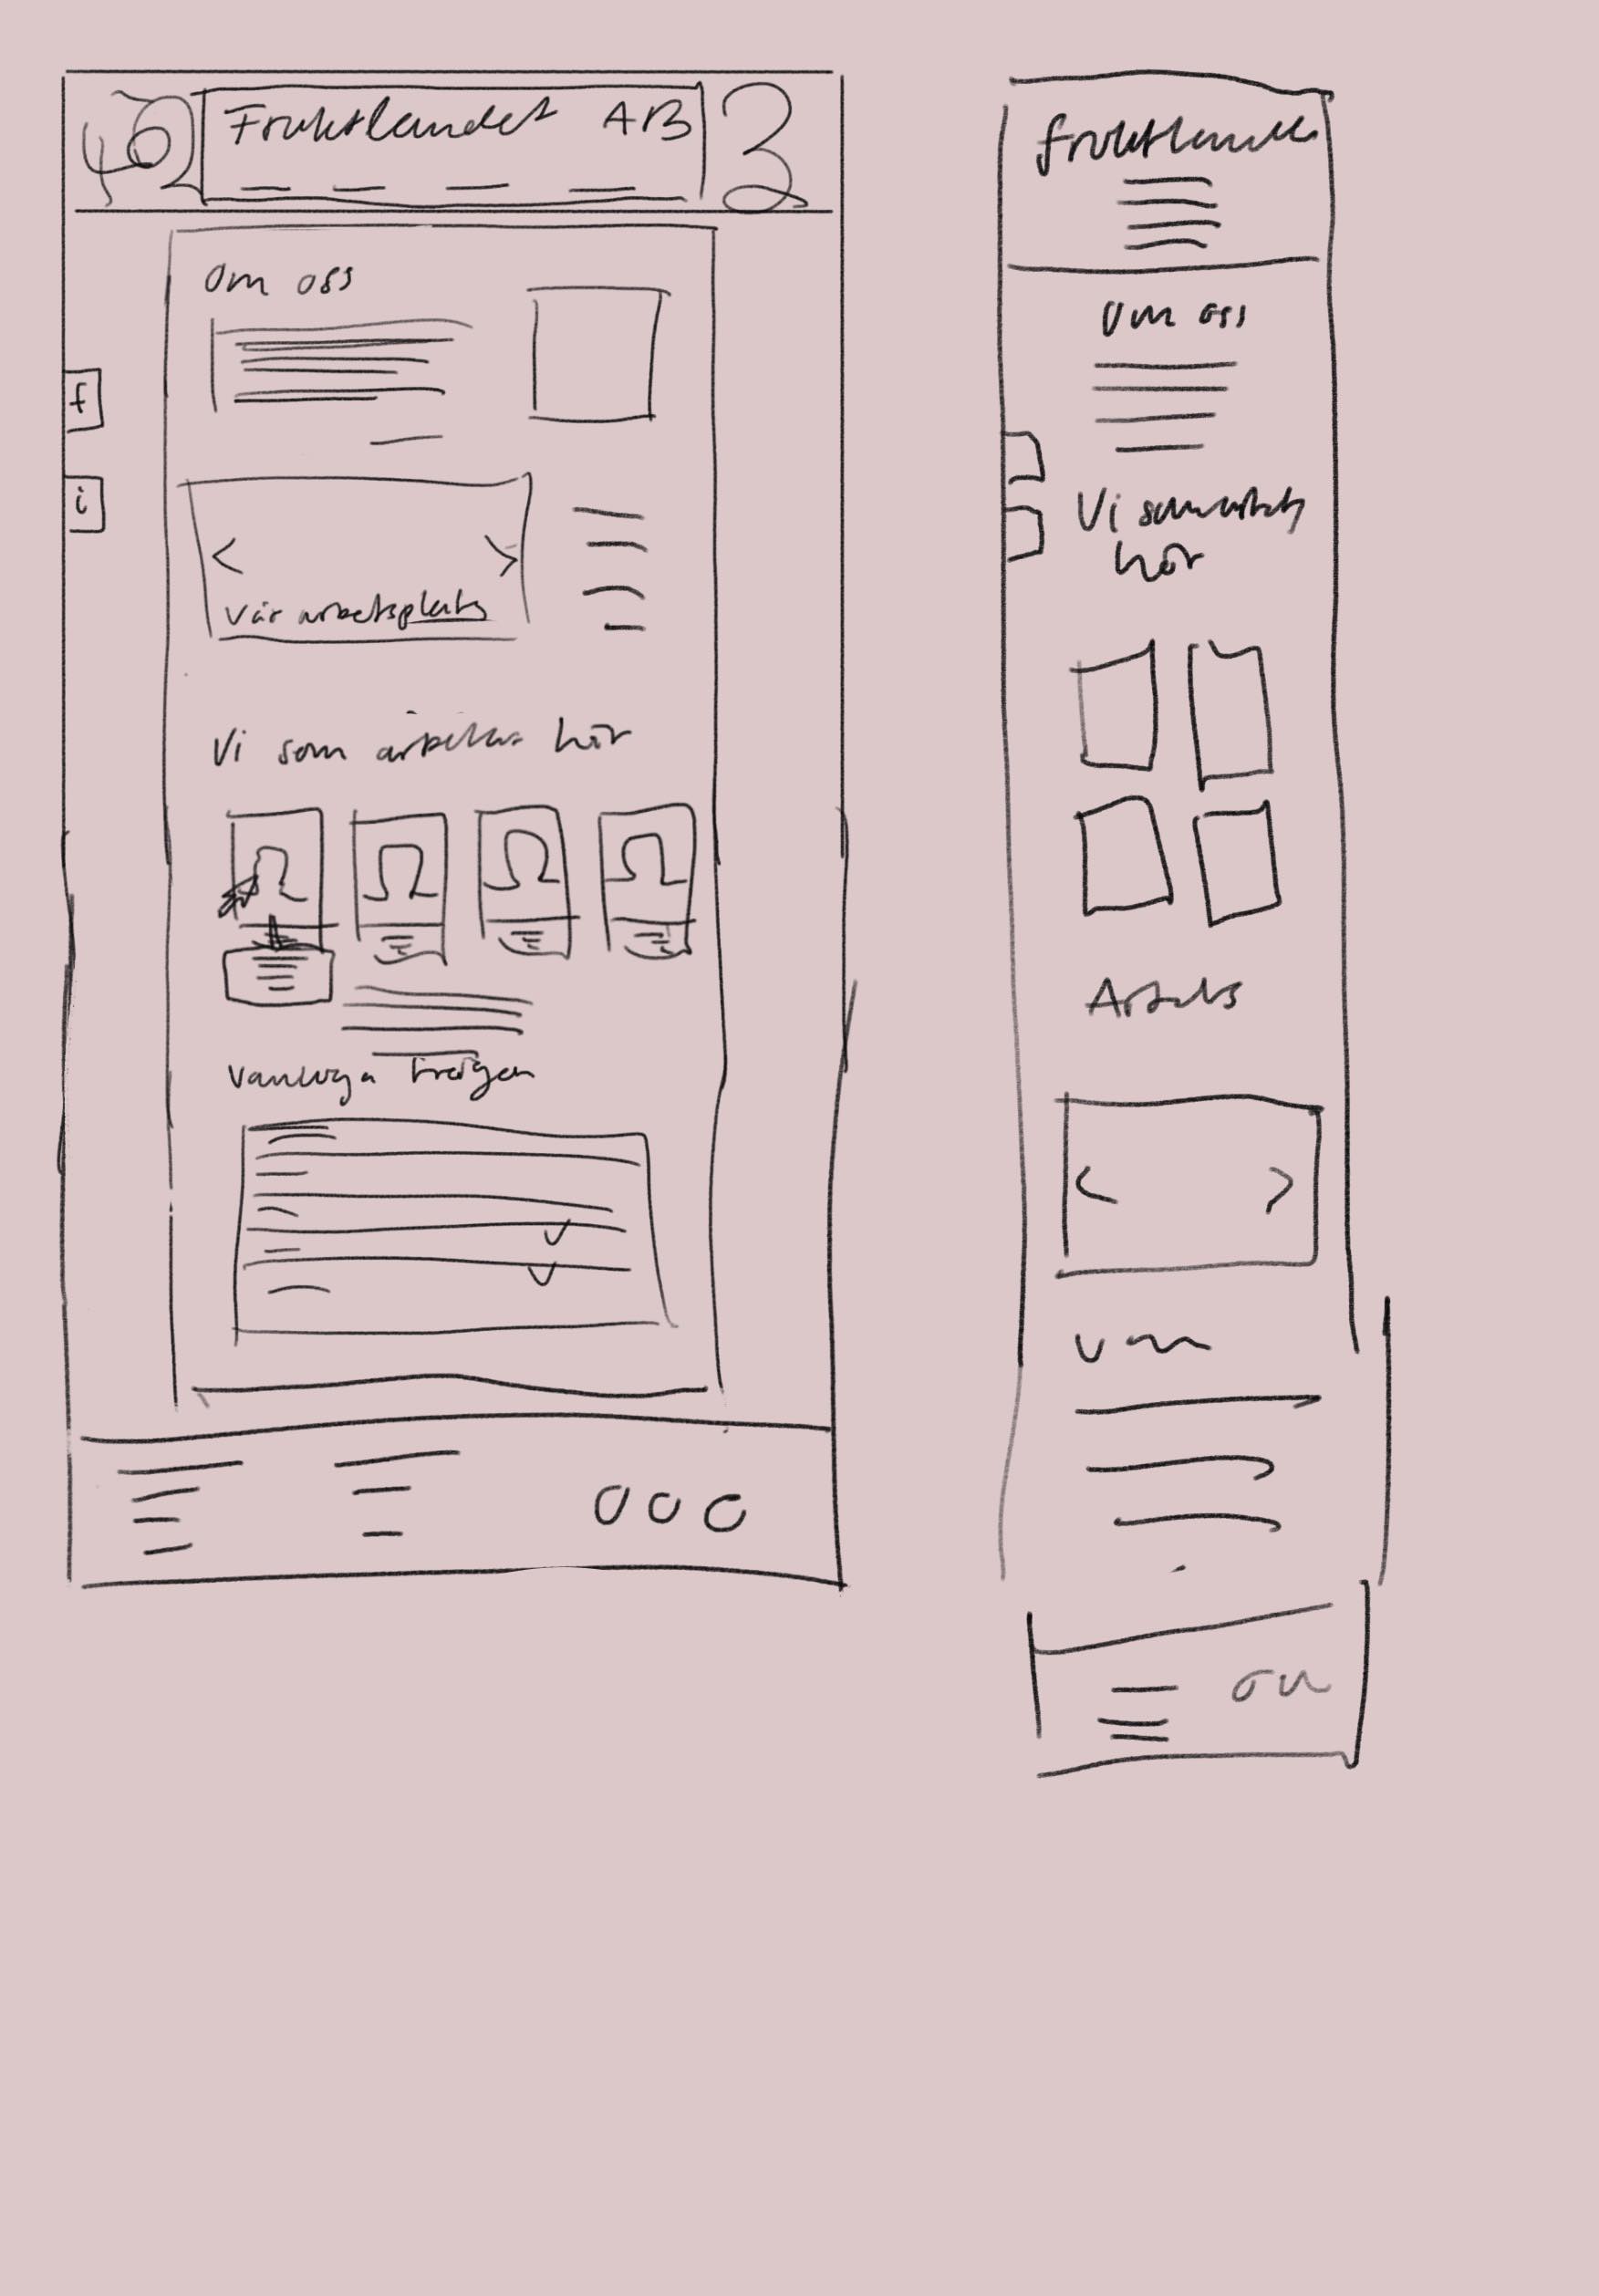 Fruktlandet AB
Om oss
f
i
Vår arbetsplats
Vi som arbetar här
Vanliga frågor
Fruktlandet
Om oss
Vi som
här